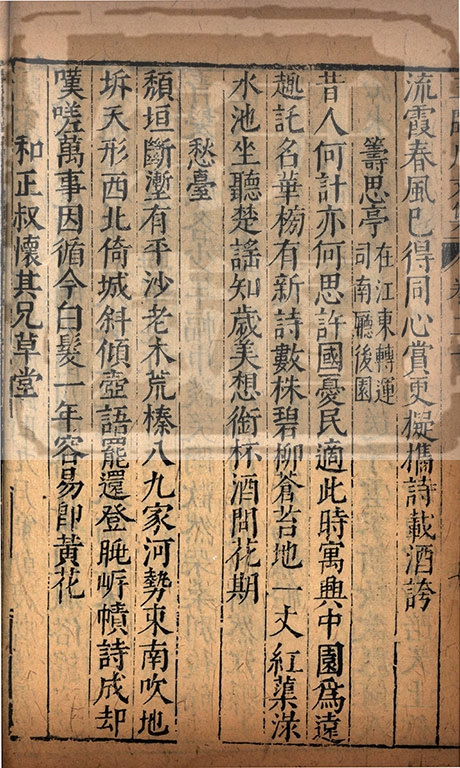 流霞春風已得同心賞更擬攜詩載酒誇
籌思亭在江東轉運
司南廳後園
昔人何計亦何思許國憂民適此時寓興中園為遠
趣託名華榜有新詩數株碧柳蒼苔地一丈紅蕖淥
水池坐聽楚謠知歲美想銜杯酒問花期
愁臺
頹垣斷塹有平沙老木荒榛八九家河勢東南吹地
坼天形西北倚城斜傾壺語罷還登眺岸幘詩成却
嘆嗟萬事因循今白髮一年容易即黃花
和正叔懷其兄草堂